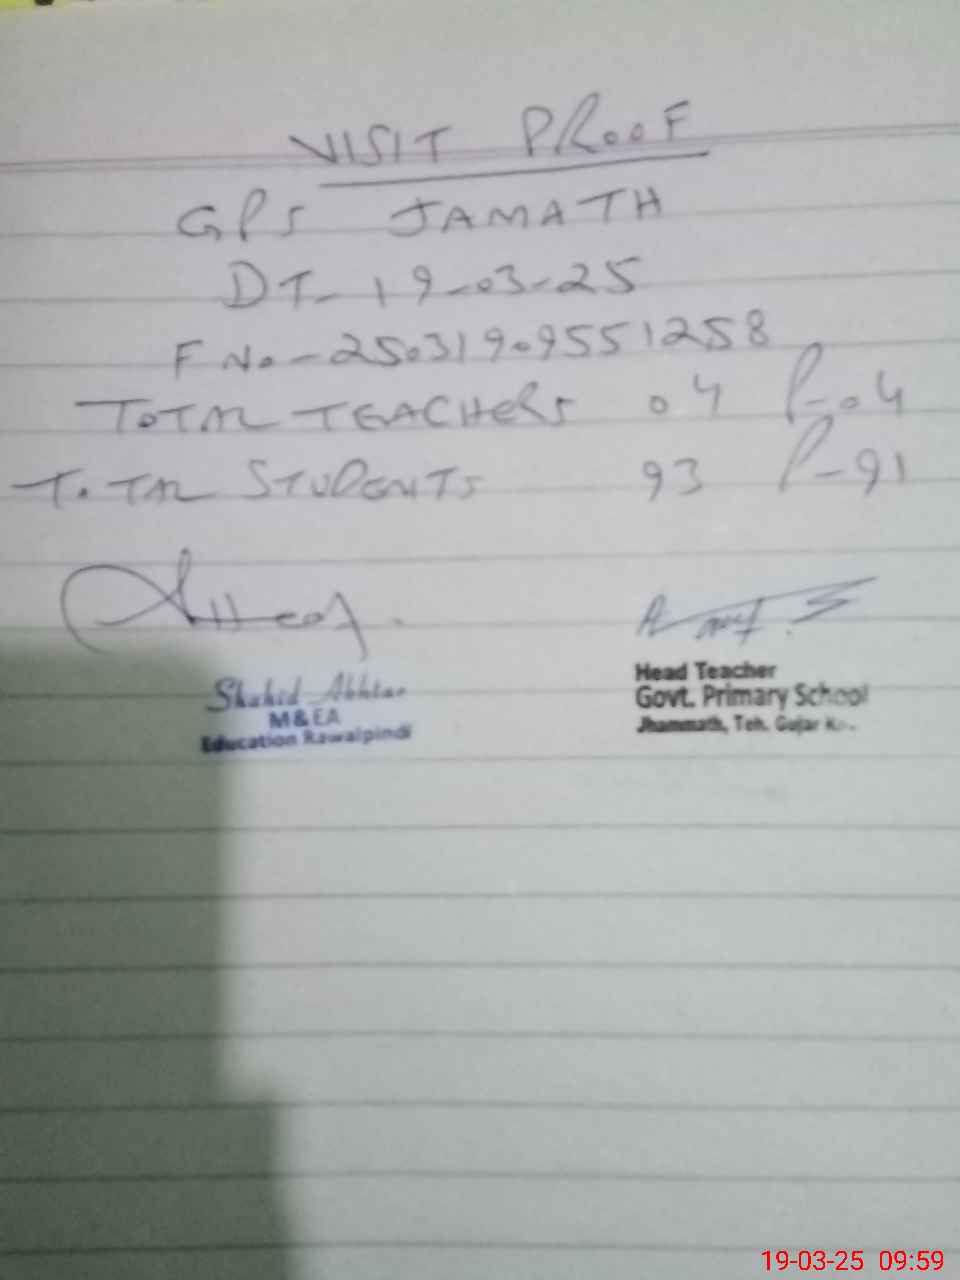 VISIT PROOF
GPS JAMATH
DT- 19-03-25
F No-25031909551258
TOTAL TEACHERS 04 P-04
TOTAL STUDENTS 93 P-91
Shahid Akhtar
M&EA
Education Rawalpindi
Head Teacher
Govt. Primary School
Jhammath, Teh. Gujar
19-03-25 09:59